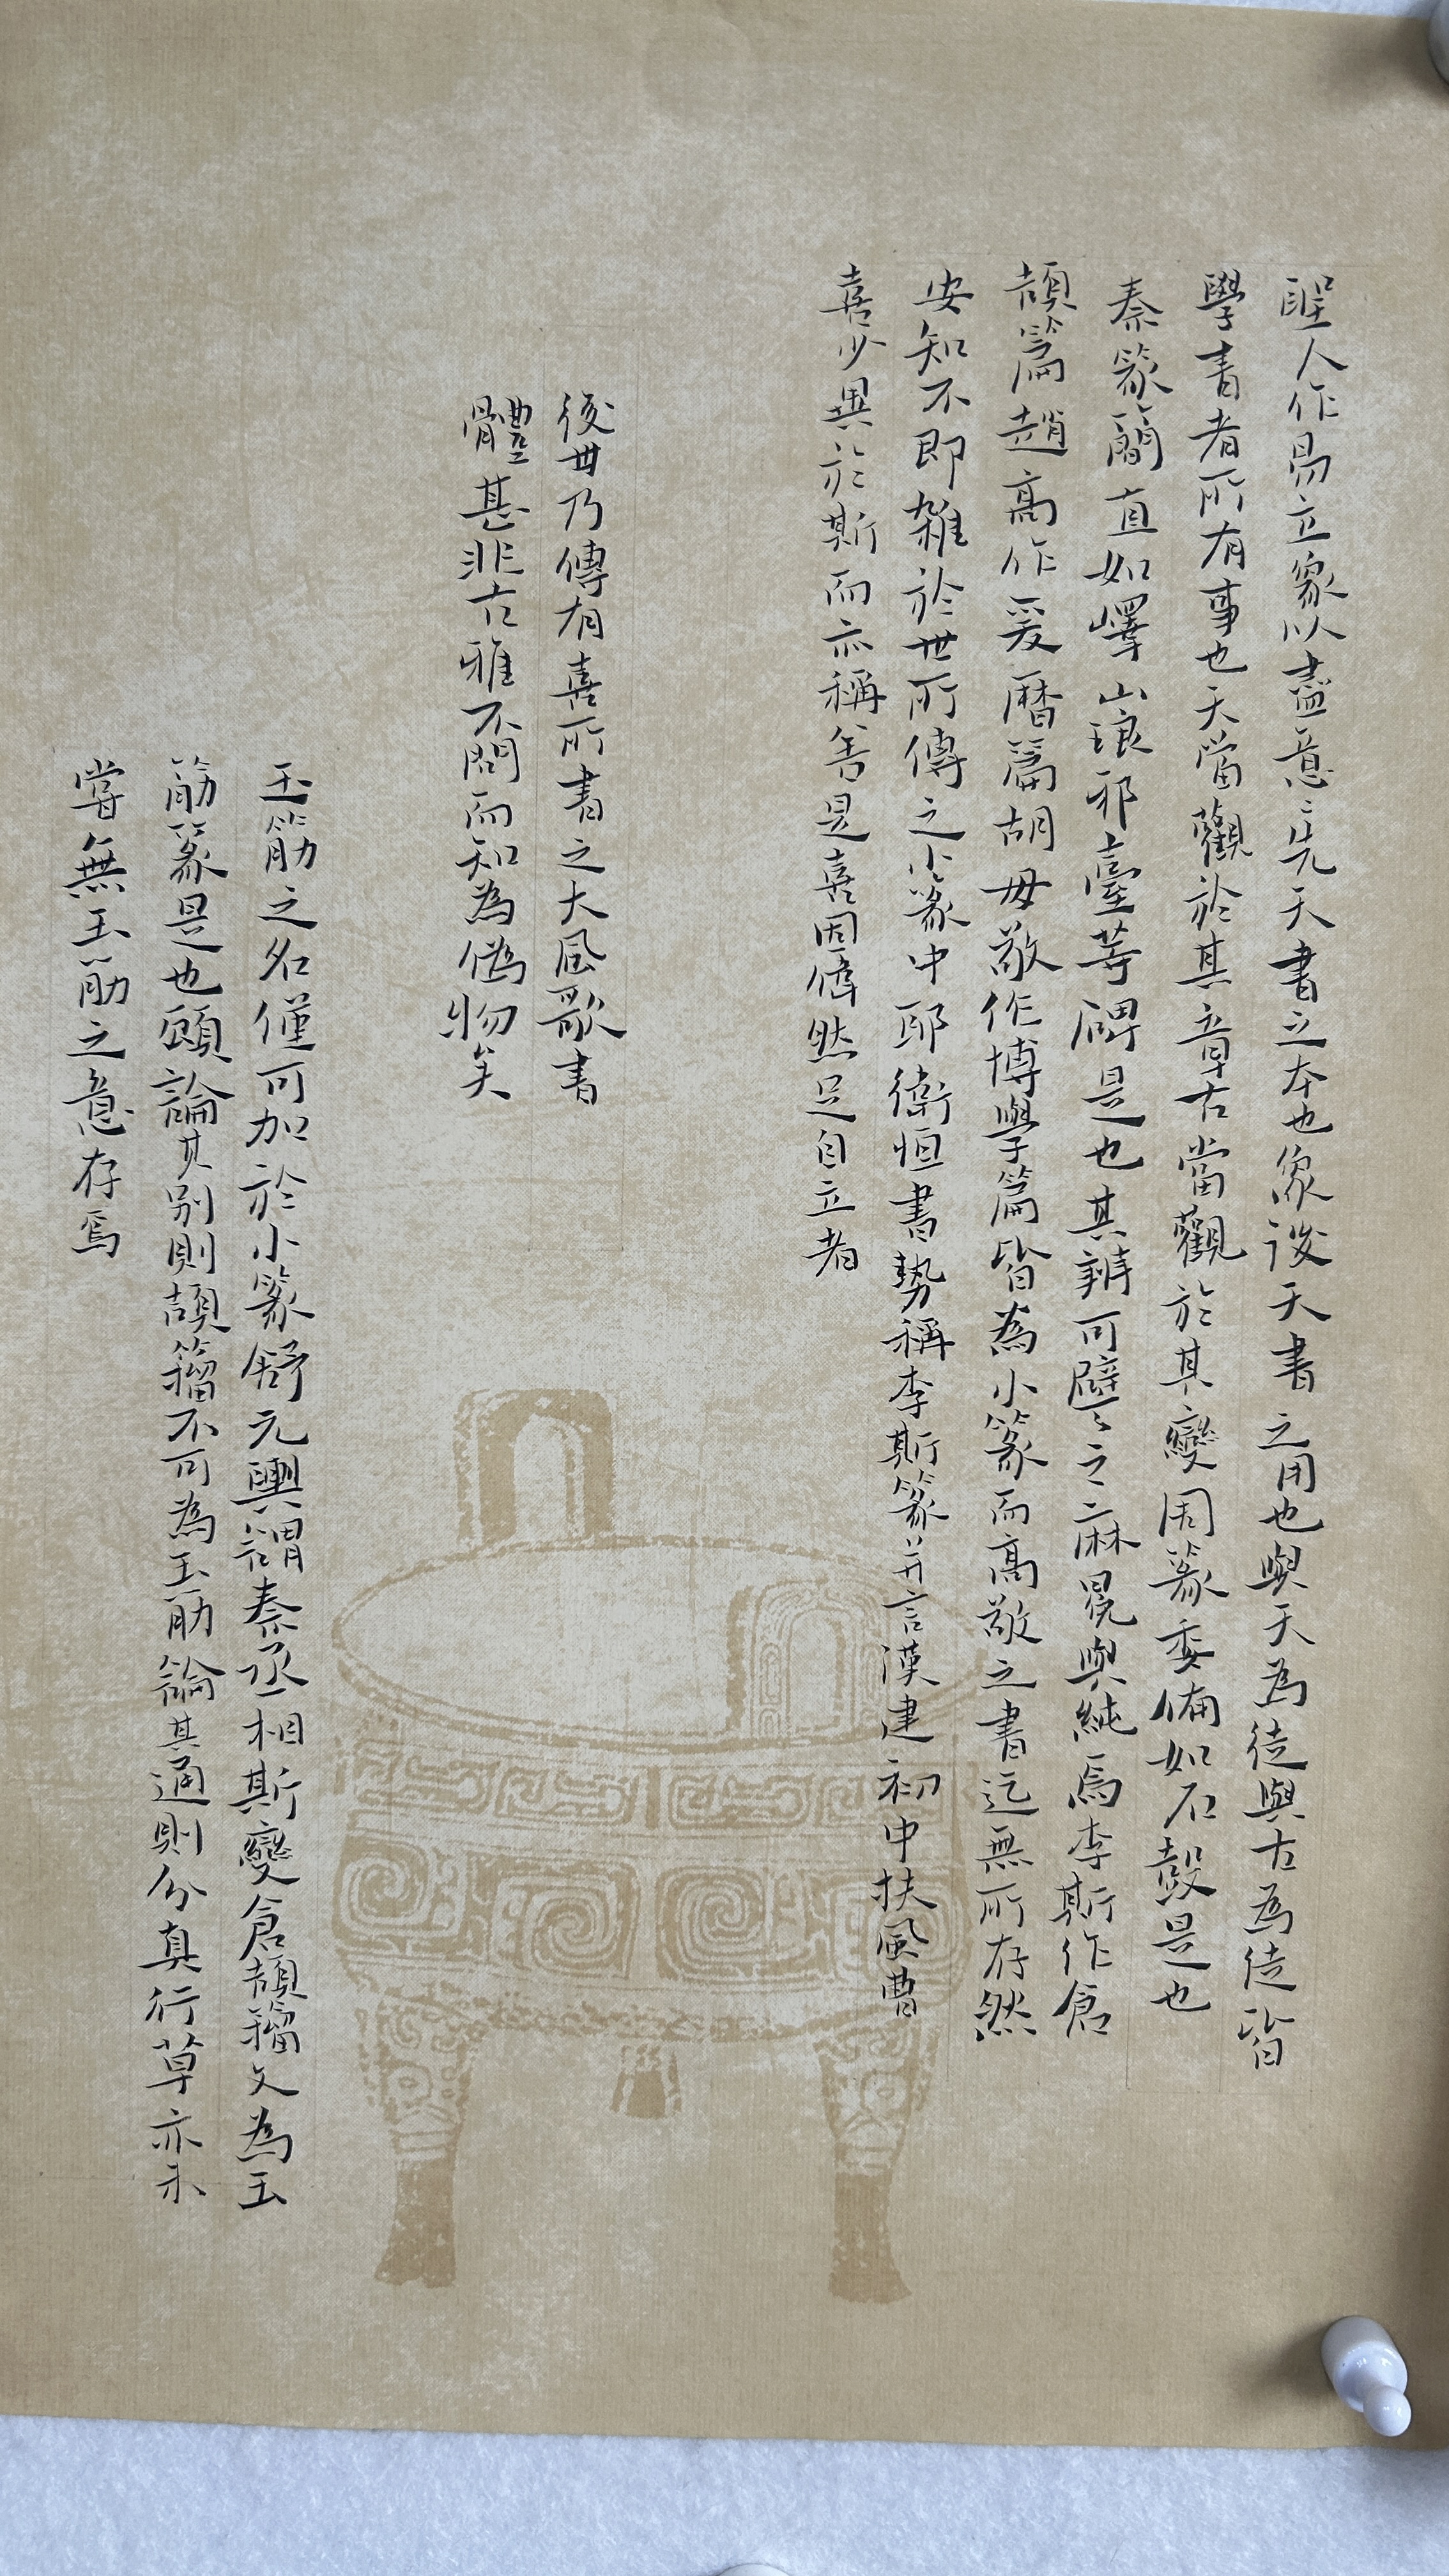 聖人作易立象以盡意〻先天書之本也象後天書之用也與天為徒與古為徒皆
學書者所有事也天當觀於其章古當觀於其變周篆委備如石鼓是也
秦篆簡直如嶧山琅邪臺等碑是也其辨可譬〻之麻冕與純焉李斯作倉
頡篇趙高作爰曆篇胡毋敬作博學篇皆為小篆而高敬之書迄無所存然
安知不即雜於世所傳之小篆中耶衛恒書勢稱李斯篆并言漢建初中扶風曹
喜少異於斯而亦稱善是喜固偉然足自立者
後世乃傳有喜所書之大風歌書
體甚非古雅不問而知為偽物矣
玉筯之名僅可加於小篆舒元輿謂秦丞相斯變倉頡籀文為玉
筯篆是也顧論其別則頡籀不可為玉筯論其通則分真行草亦未
嘗無玉筯之意存焉